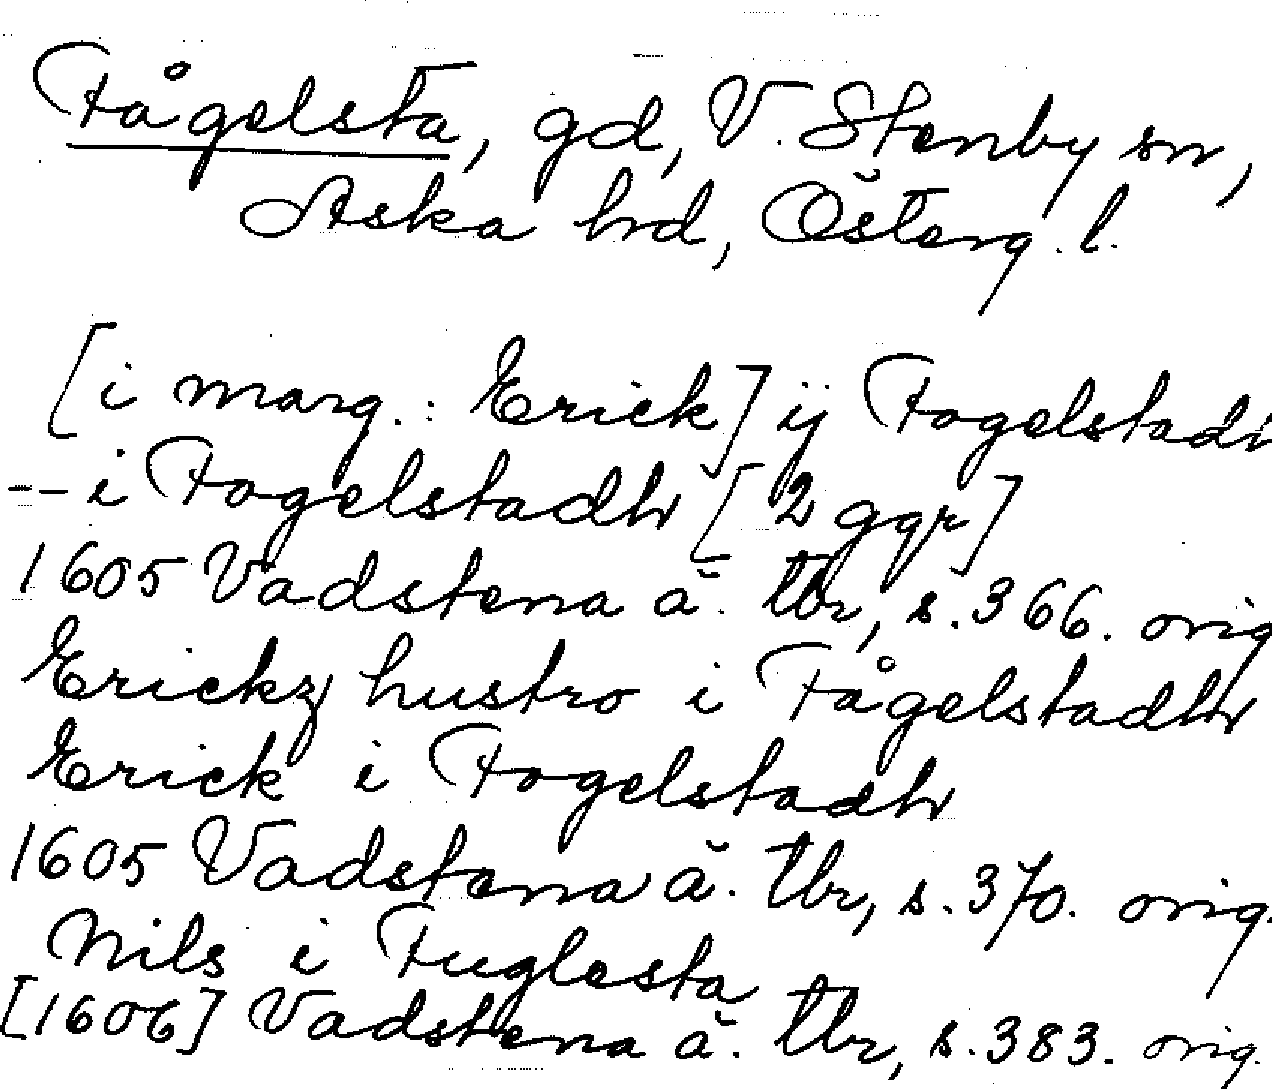 Fågelsta, gd, V. Stenby sn,
Aska hd, Österg. l.
[i marg. : Erick] ij Fogelstadh
-- i Fogelstadh [2 ggr]
1605 Vadstena ä. tbr, s. 366. orig
Erickz hustro i Fågelstadh
Erick i Fogelstadh
1605 Vadstena ä. tbr, s. 370. orig.
Nils i Fuglesta
[1606] Vadstena ä. tbr, s. 383. orig.